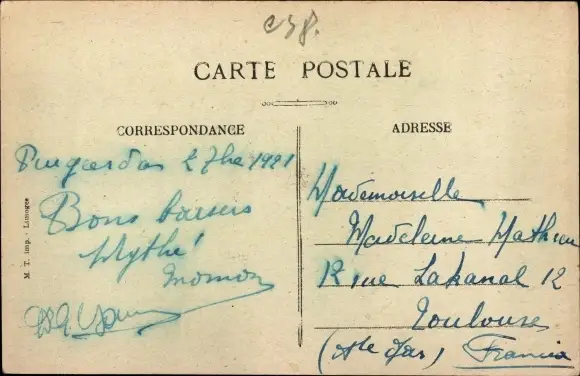 CARTE POSTALE
CORRESPONDANCE
ADRESSE
Puigcerda 2 7bre 1921
Bons baisers
Momon
M. T. Imp. - Limoges
Mademoiselle
Madeleine Mathieu
12 rue Lakanal 12
Toulouse
(Hte Gar) Francia